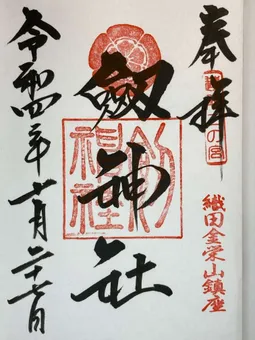 奉拝
織田金栄山鎮座
劔神社
令和四年十月二十七日